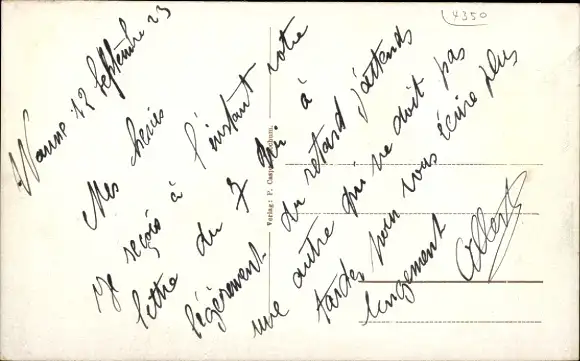 4350
Wanne 12 Septembre 23
Mes chéris
Je reçois à l'instant votre
lettre du 7 qui à
légèrement du retard j'attends
une autre qui ne doit pas
tarder pour vous écrire plus
longuement
Albert
Verlag: P. Casp